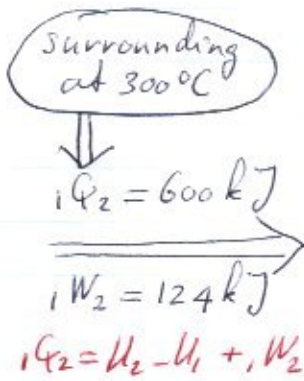 surrounding
at 300°C
₁Q₂ = 600 kJ
₁W₂ = 124 kJ
₁Q₂ = U₂ - U₁ + ₁W₂